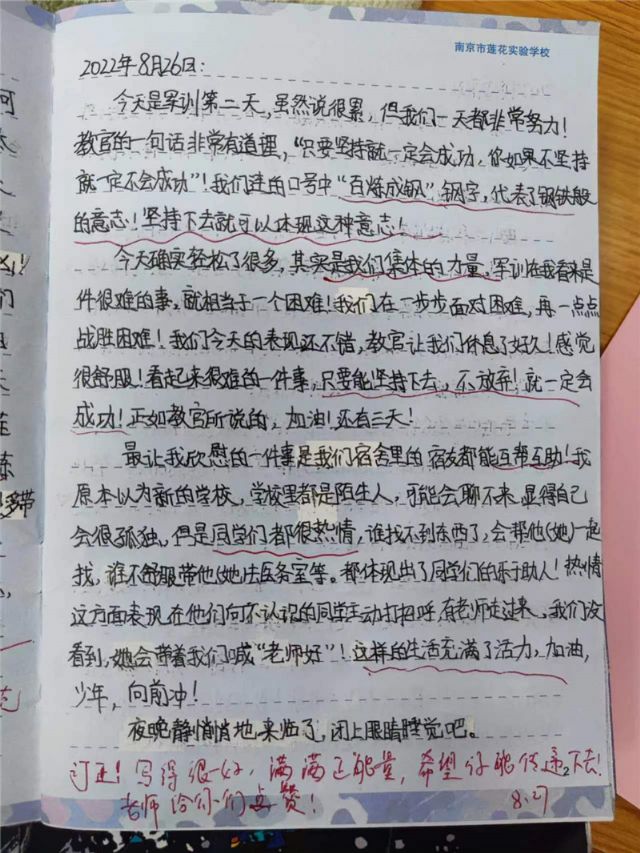 南京市莲花实验学校
2022年8月26日：
今天是军训第二天，虽然说很累，但我们一天都非常努力！
教官的一句话非常有道理，“只要坚持就一定会成功，你如果不坚持
就一定不会成功”！我们连的口号中“百炼成钢”钢字，代表了钢铁般
的意志！坚持下去就可以体现这种意志！
今天确实轻松了很多，其实是我们集体的力量，军训在我看来是
件很难的事，就相当于一个困难！我们在一步步面对困难，再一点点
战胜困难！我们今天的表现还不错，教官让我们休息了好久！感觉
很舒服！看起来很难的一件事，只要能坚持下去，不放弃！就一定会
成功！正如教官所说的，加油！还有三天！
最让我欣慰的一件事是我们宿舍里的宿友都能互帮互助！我
原本以为新的学校，学校里都是陌生人，可能会聊不来显得自己
会很孤独，但是同学们都很热情，谁找不到东西了，会帮他(她)一起
找，谁不舒服带他(她)去医务室等。都体现出了同学们的乐于助人！热情
这方面表现在他们向不认识的同学主动打招呼，有老师走过来，我们没
看到，她会带着我们喊“老师好”！这样的生活充满了活力，加油，
少年，向前冲！
夜晚静悄悄地来临了，闭上眼睛睡觉吧。
订正！写得很好，满满正能量，希望你能传递下去！
老师给你们点赞！
8.27